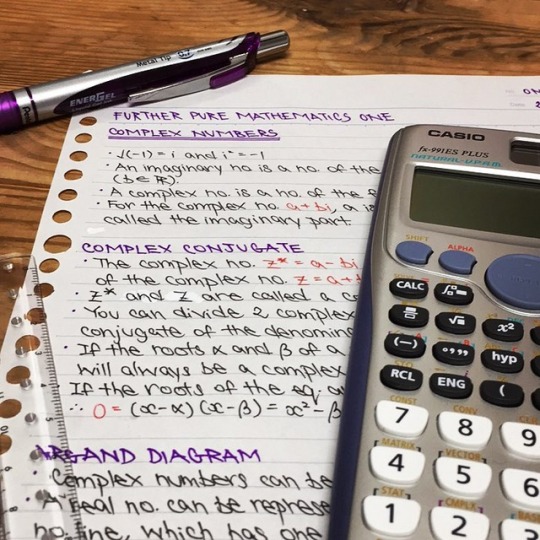 Metal Tip 0.7
ENERGEL
Pentel
FURTHER PURE MATHEMATICS ONE
COMPLEX NUMBERS
· √(-1) = i and i² = -1
· An imaginary no is a no. of the
(b ∈ ℝ).
· A complex no. is a no. of the
· For the complex no. a + bi, a is
called the imaginary part.
COMPLEX CONJUGATE
· The complex no. z* = a - bi
of the complex no. z = a +
· z* and z are called a
· You can divide 2 complex
conjugate of the
· If the roots α and β of a
will always be a complex
· If the roots of the eq
∴ 0 = (x-α)(x-β) = x² - β
ARGAND DIAGRAM
· Complex numbers can be
· A real no. can be
no. line, which has one
Date
CASIO
fx-991ES PLUS
NATURAL-V.P.A.M.
SHIFT ALPHA
CALC
√ x²
(-) °'" hyp
RCL ENG (
CONST CONV
7 8 9
MATRIX VECTOR
4 5 6
STAT CMPLX BASE
1 2 3